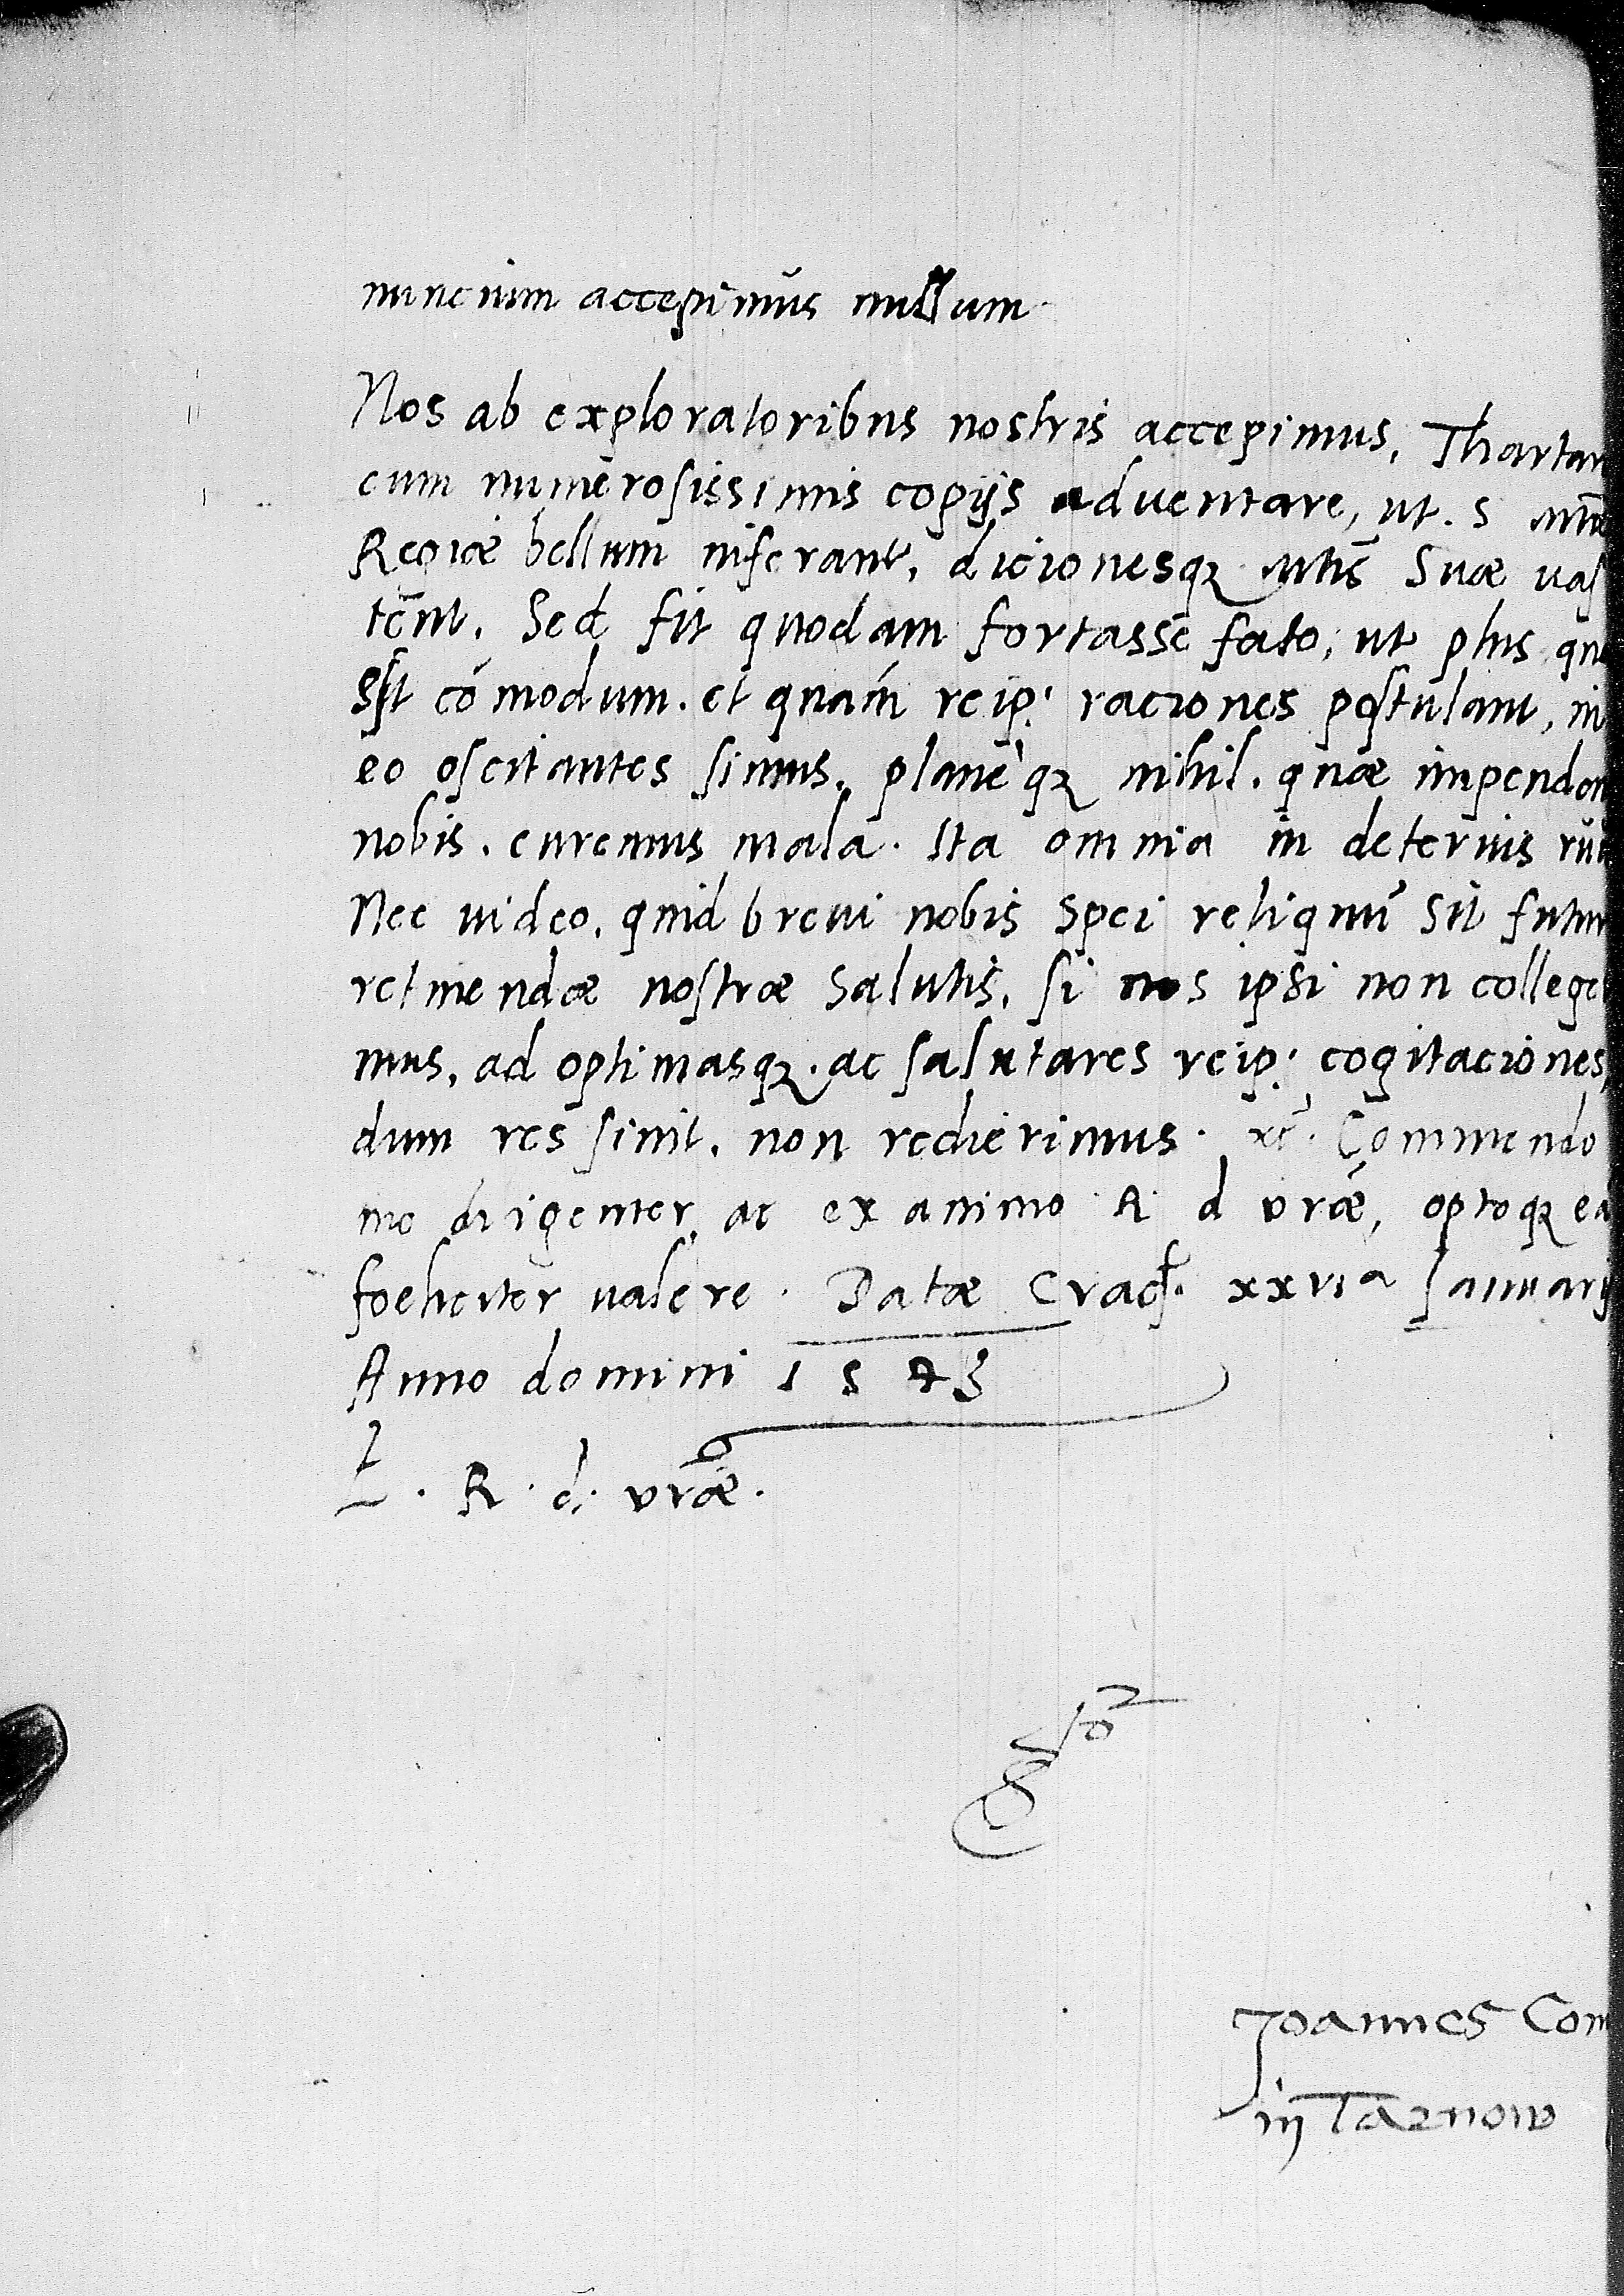 nuncium accepimus nullum
Nos ab exploratoribus nostris accepimus, Thartar
cum numerosissimis copijs aduentare, ut. s
Regiæ bellum inferant, dicionesqꝫ Mtis Suæ uas
tent. Sed fit quodam fortasse fato, ut plus
sit cōmodum. et quam reip. raciones postulant, in
eo oscitantes simus, planeqꝫ nihil. quæ impenden
nobis. curemus mala. Ita omnia in deterius
Nec uideo, quid breui nobis spei reliquū sit futur
retinendæ nostræ salutis, si nos ipsi non college
mus, ad optimasqꝫ. ac salutares reip. cogitaciones,
dum res sinit, non redierimus. Commendo
me diligenter ac ex animo R d vrāe, optoqꝫ ea
foeliciter ualere. Datæ Crac. xxvi a Ianuarij
Anno domini 1543
R. d. vrāe.
Joannes Com
in Tarnow